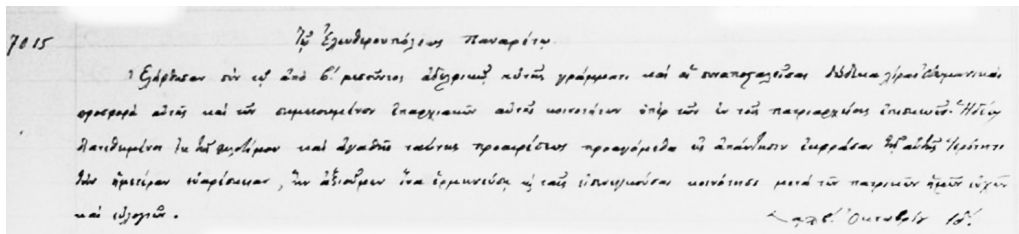 7015 Τῷ Ἐλευθερουπόλεως Παναρέτῳ
Ἐλήφθησαν σὺν τῷ ἀπὸ β΄ μεσοῦντος ἀδελφικῷ αὐτῆς γράμματι καὶ αἱ συναποσταλεῖσαι δώδεκα λίραι Ὀθωμανικαὶ
προσφορὰ αὐτῆς καὶ τῶν ἐπαρχιακῶν αὐτῆς κοινοτήτων ὑπὲρ τῶν ἐν τοῖς πατριαρχείοις ἐπισκευῶν. Ἡδέως
διατεθειμένοι ἐκ τῆς φιλοτίμου καὶ ἀγαθῆς ταύτης προαιρέσεως προαγόμεθα εἰς ἀπάντησιν ἐκφράσαι τῇ αὐτῆς Ἱερότητι
τὴν ἡμετέραν εὐαρέσκειαν, ἣν ἀξιοῦμεν ἵνα ἑρμηνεύσῃ καὶ ταῖς εἰσενεγκούσαις κοινότησι μετὰ τῶν πατρικῶν ἡμῶν εὐχῶν
καὶ εὐλογιῶν. Ὀκτωβρίου ιδ΄.